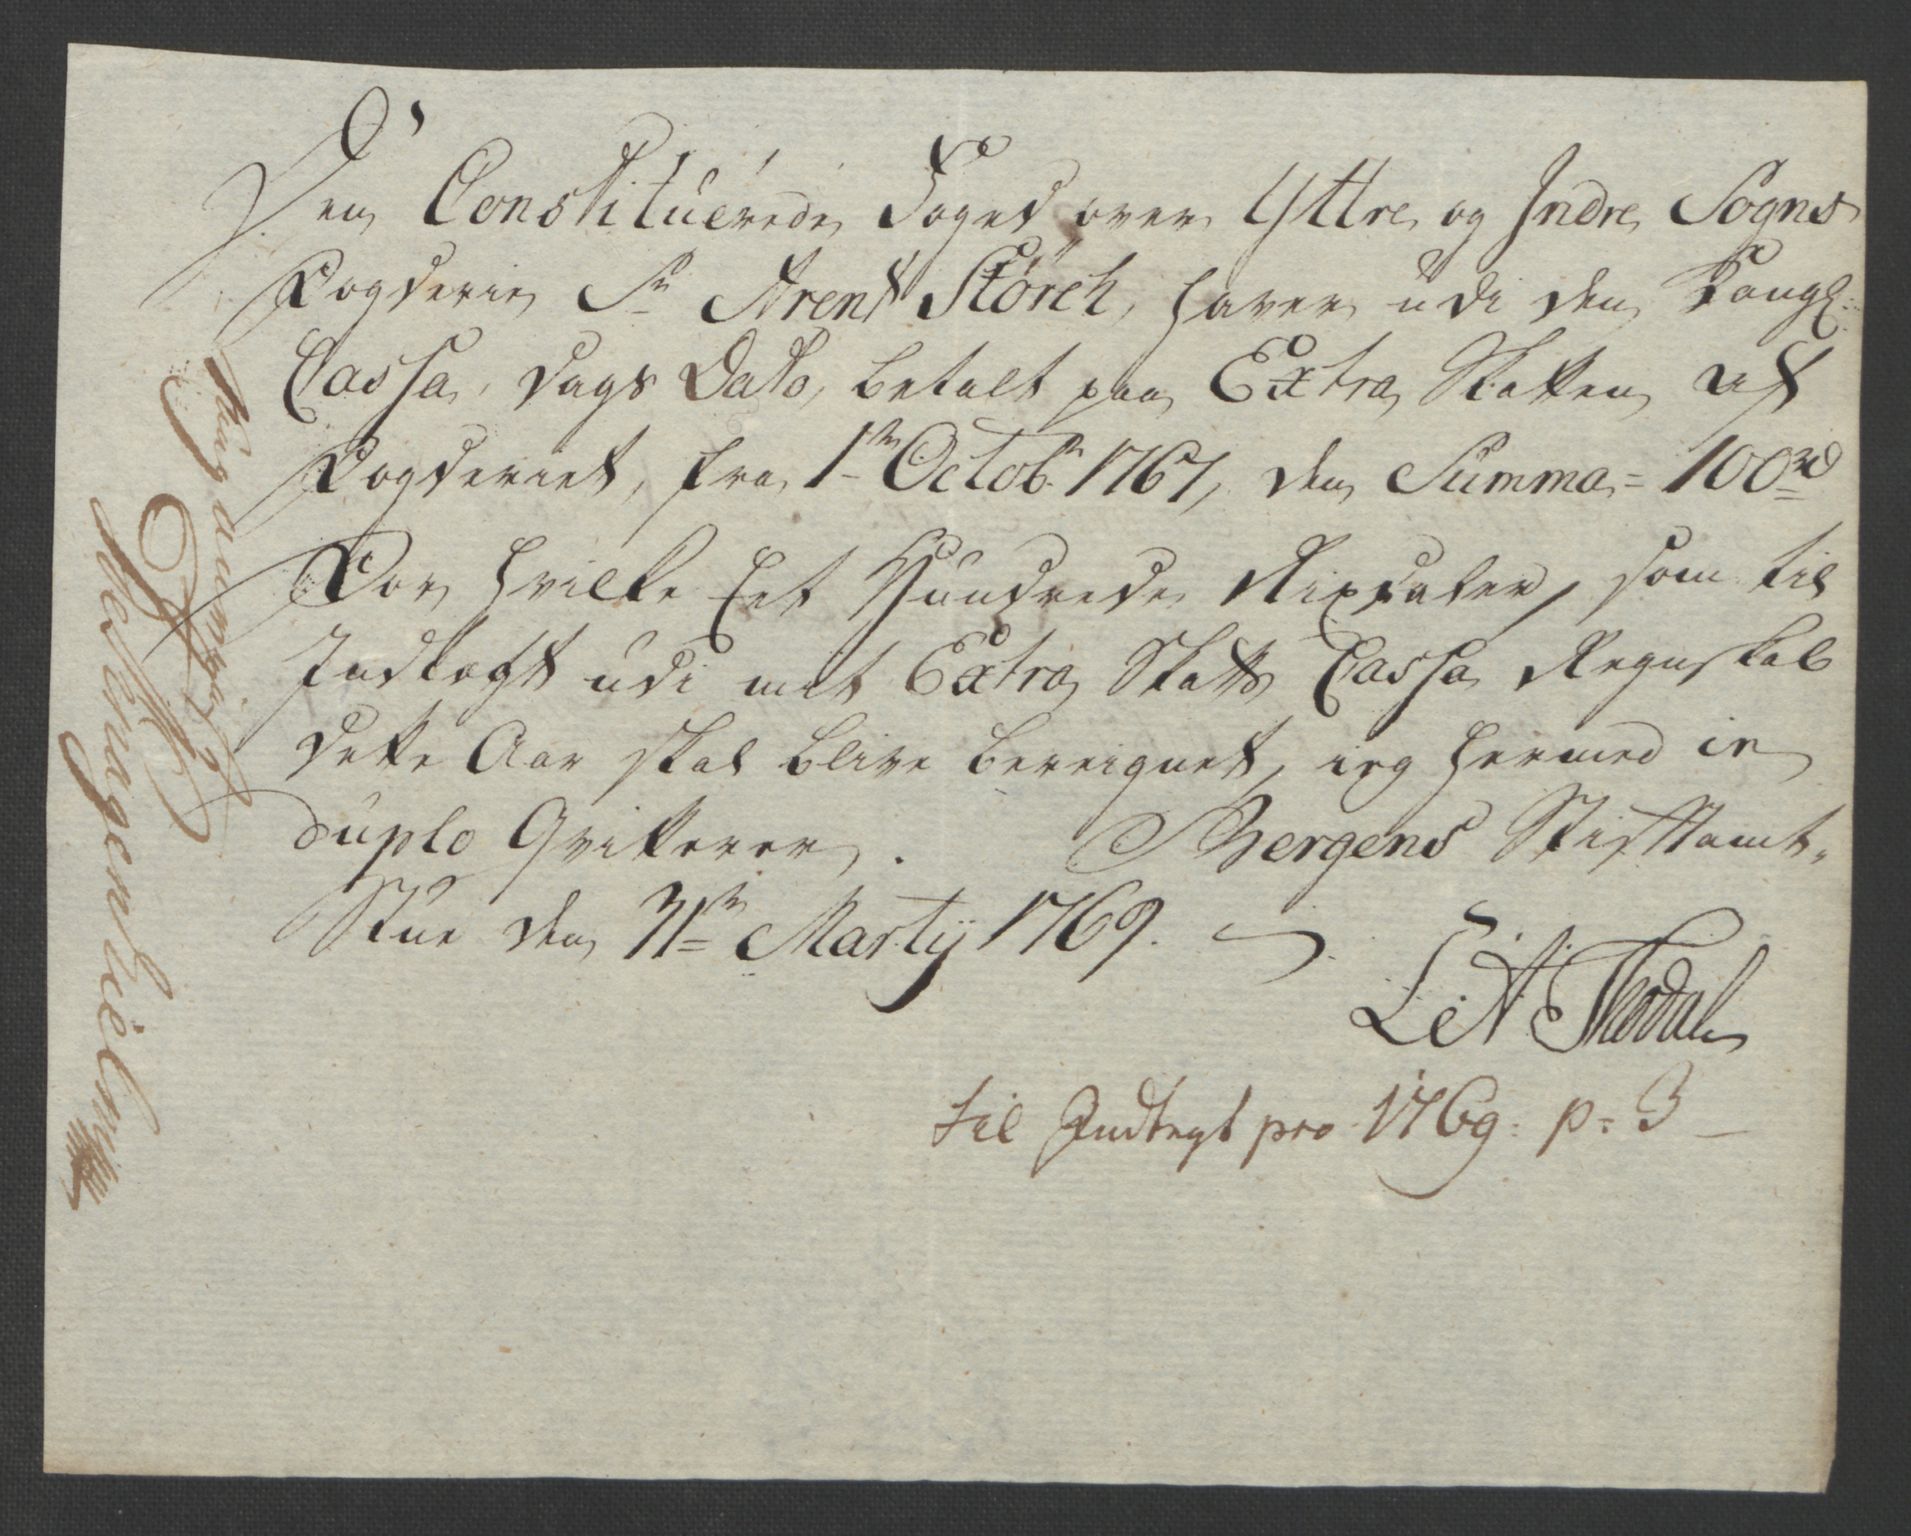 Den Constituerede Foged over Yttre og Indre Sogns
Fogderie Sr Arent Störch, haver udi den Kongl:
Cassa, Dags Dato, betalt paa Extra Skatten af
Fogderiet, fra 1te Octobr 1767, den Summa = 100 rd
For hvilke Eet Hundrede Rixdaler, som til
Indtægt udi mit Extra Skatts Cassa Regnskab
dette Aar skal blive bereignet, ieg hermed in
duplo Qvitterer. Bergens Stiftamt-
Stue den 31te Martij 1769.
Thodal
til Indtegt pro 1769: p: 3